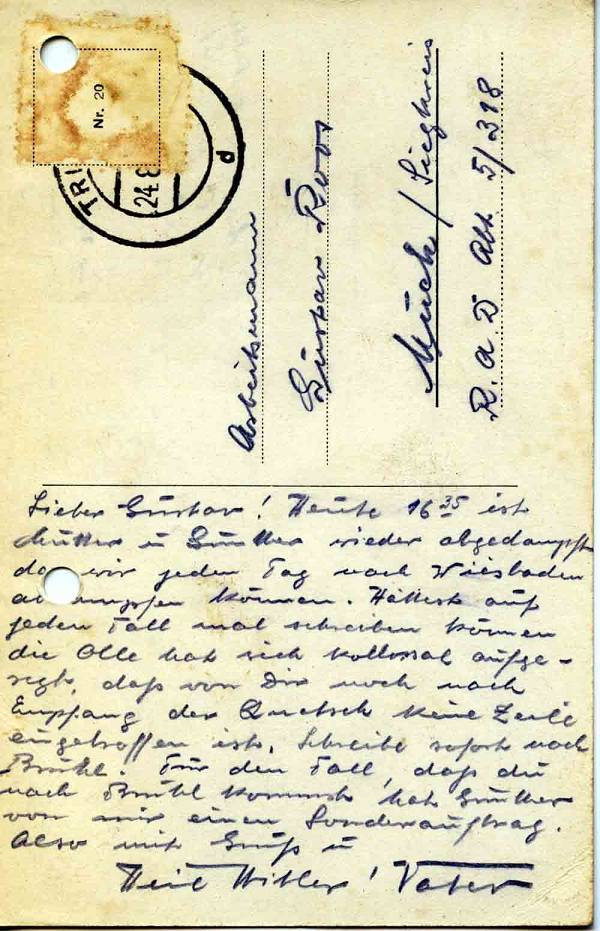 Nr. 20
TRI
24.8
d
Arbeitsmann
Gustav Roos
Much / Siegkreis
R. a D Abt 5/318
Lieber Gustav! Heute 16 35 ist
Mutter u Günther wieder abgedampft
da wir jeden Tag nach Wiesbaden
abdampfen können. Hättest auf
jeden Fall mal schreiben können
die Olle hat sich kollossal aufge-
regt, daß von Dir noch nach
Empfang der Quetsch keine Zeile
eingetroffen ist. Schreibe sofort nach
Brühl. Für den Fall, daß du
nach Brühl kommst hat Günther
von mir einen Sonderauftrag.
Also mit Gruß u
Heil Hitler! Vater